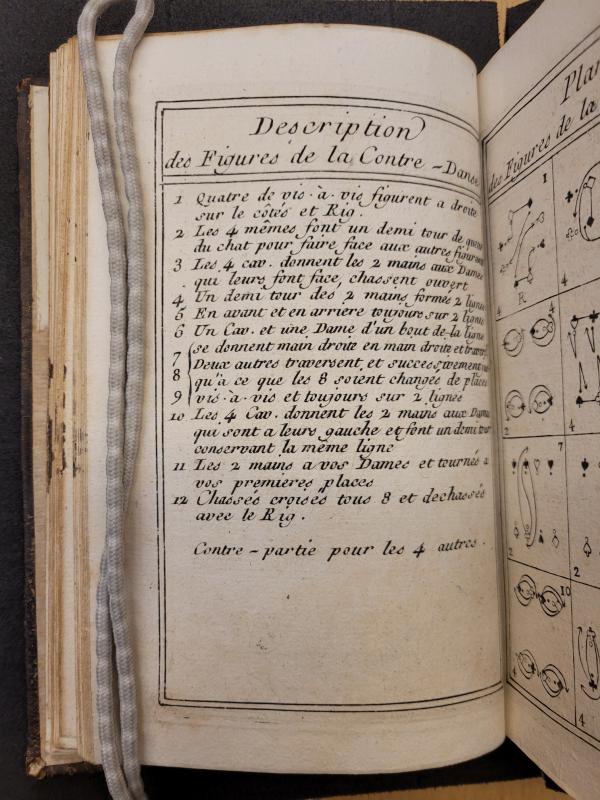 Description
des Figures de la Contre-Danse
1 Quatre de vis-à-vis figurent a droite
sur le côtés et Rig.
2 Les 4 mêmes font un demi tour de queue
du chat pour faire face aux autres
3 Les 4 cav. donnent les 2 mains aux Dames
qui leurs font face, chassent ouvert
4 Un demi tour des 2 mains formés 2 lignes
5 En avant et en arriere toujours sur 2 lignes
6 Un Cav. et une Dame d'un bout de la ligne
se donnent main droite en main droite et
7 Deux autres traversent, et successivement
8 qu'a ce que les 8 soient changés de places
9 vis-à-vis et toujours sur 2 lignes
10 Les 4 Cav. donnent les 2 mains aux Dames
qui sont a leurs gauche et font un demi tour
conservant la même ligne
11 Les 2 mains a vos Dames et tournés a
vos premieres places
12 Chassés croisés tous 8 et dechassés
avec le Rig.
Contre-partie pour les 4 autres.
Plan
des Figures de la
1
4
R
4
4
2
7
2
2
10
4
4